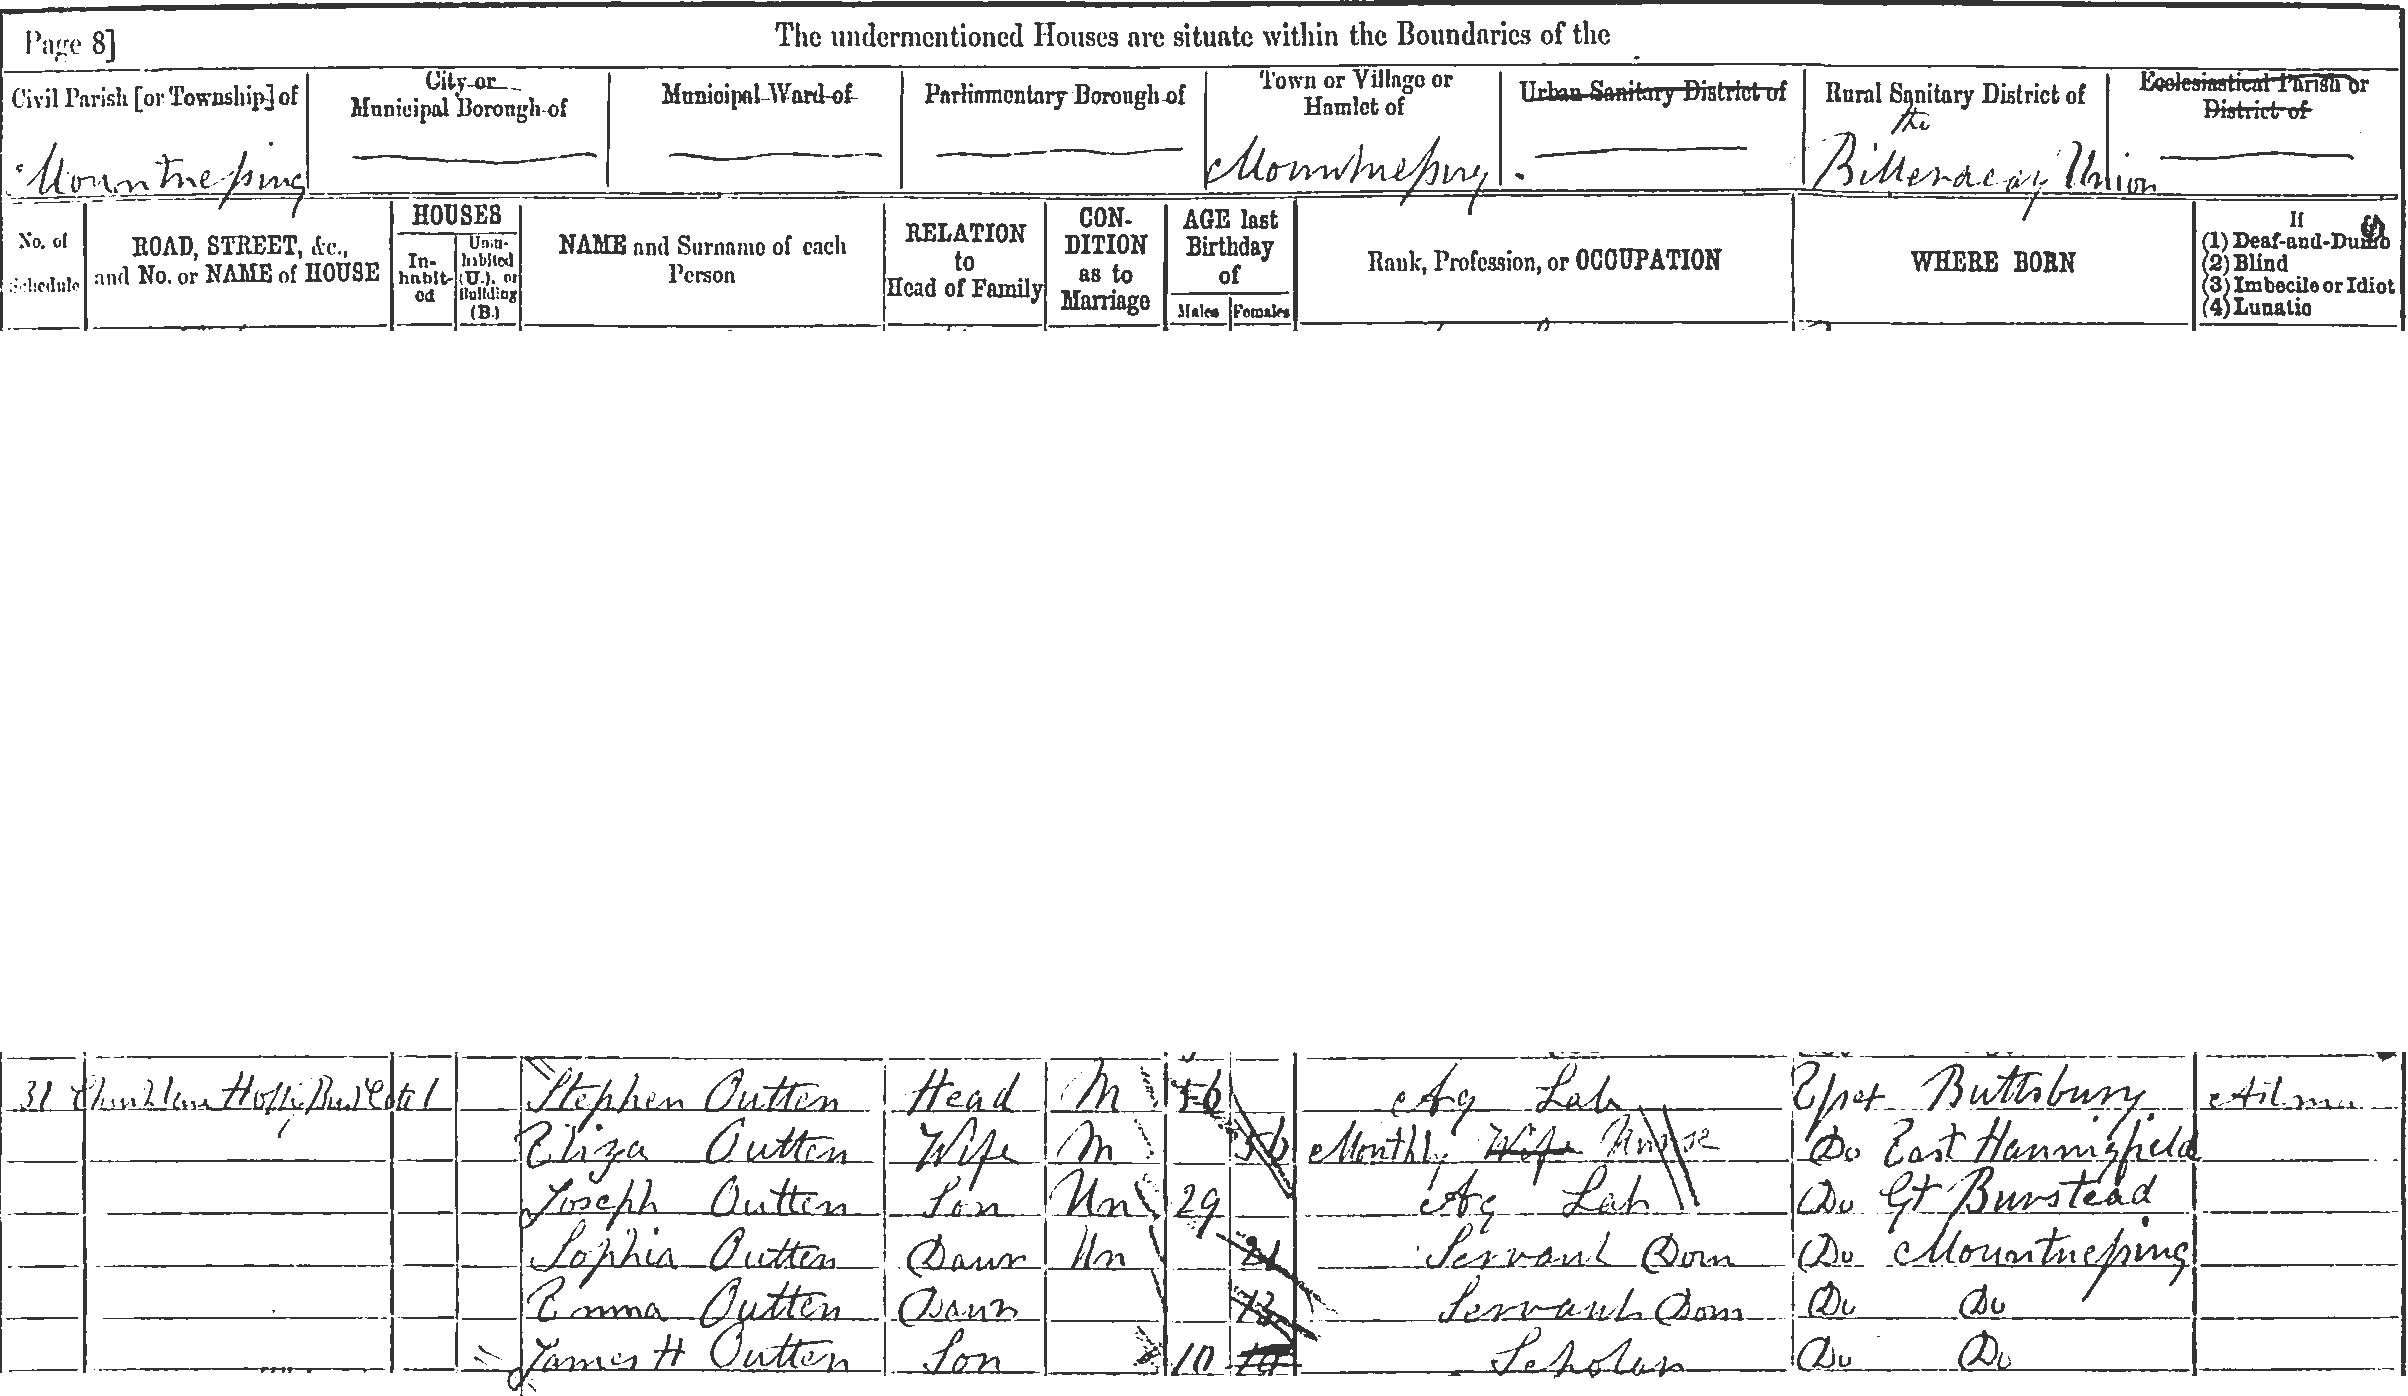 Page 8]
The undermentioned Houses are situate within the Boundaries of the
Civil Parish [or Township] of
City or Municipal Borough of
Municipal Ward of
Parliamentary Borough of
Town or Village or Hamlet of
Urban Sanitary District of
Rural Sanitary District of
Ecclesiastical Parish or District of
Mountnessing
Mountnessing
the Billericay Union
No. of Schedule
ROAD, STREET, &c., and No. or NAME of HOUSE
HOUSES
In-habit-ed
Unin-habited (U.), or Building (B.)
NAME and Surname of each Person
RELATION to Head of Family
CON-DITION as to Marriage
AGE last Birthday of
Males
Females
Rank, Profession, or OCCUPATION
WHERE BORN
If
(1) Deaf-and-Dumb
(2) Blind
(3) Imbecile or Idiot
(4) Lunatic
31 1 Stephen Outten Head M 56 Ag Lab Essex Buttsbury
Eliza Outten Wife M 56 Monthly Wife Nurse Do East Hanningfield
Joseph Outten Son Un 29 Ag Lab Do Gt Burstead
Sophia Outten Daur Un 21 Servant Dom Do Mountnessing
Emma Outten Daur 13 Servant Dom Do Do
James H Outten Son 10 10 Scholar Do Do